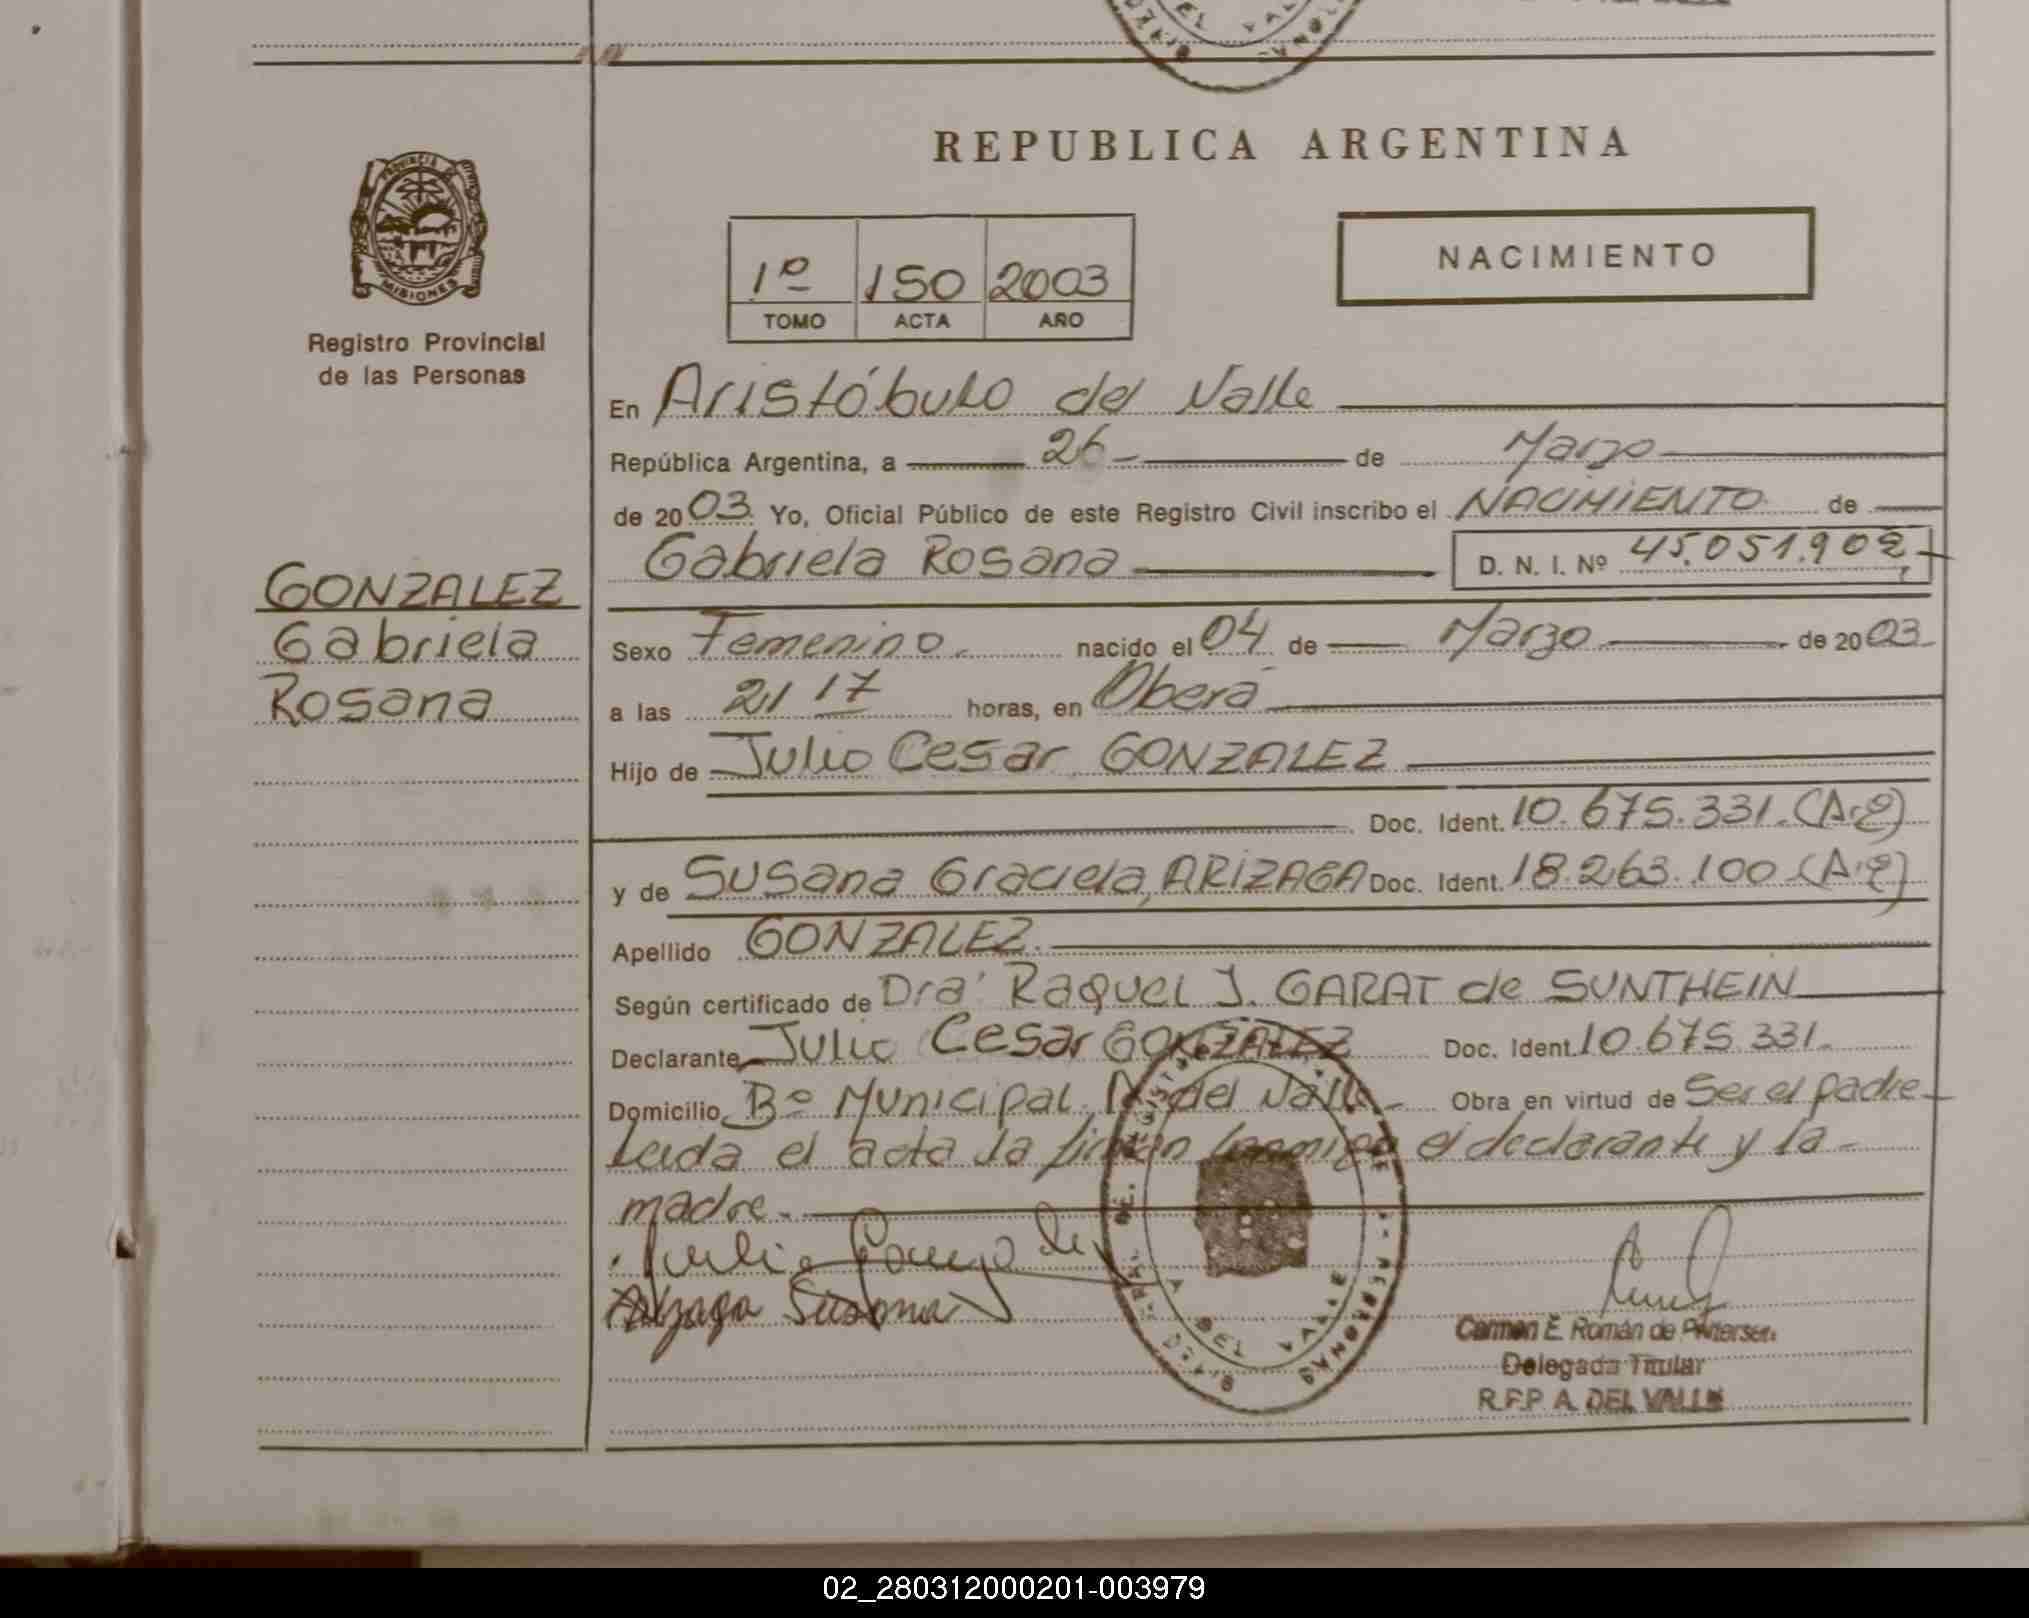 REPUBLICA ARGENTINA
PROVINCIA DE MISIONES
Registro Provincial
de las Personas
1º 150 2003
TOMO ACTA AÑO
NACIMIENTO
En Aristóbulo del Valle
República Argentina, a 26 de Marzo
de 2003 Yo, Oficial Público de este Registro Civil inscribo el NACIMIENTO de
Gabriela Rosana D. N. I. Nº 45.051.902
GONZALEZ
Gabriela
Rosana
Sexo Femenino. nacido el 04 de Marzo de 2003
a las 21 17 horas, en Oberá
Hijo de Julio Cesar GONZALEZ
Doc. Ident. 10.675.331. (Arg)
y de Susana Graciela, ARIZAGA Doc. Ident. 18.263.100 (Arg)
Apellido GONZALEZ.
Según certificado de Dra. Raquel J. GARAT de SUNTHEIN
Declarante Julio Cesar GONZALEZ Doc. Ident. 10.675.331.
Domicilio Bº Municipal A. del Valle Obra en virtud de Ser el padre
Leida el acta la firman conmigo el declarante y la
madre.
Julio Gonzalez
Arizaga Susana
DEL VALLE
Carmen E. Román de
Delegada Titular
R.P.P. A. DEL VALLE
02_280312000201-003979